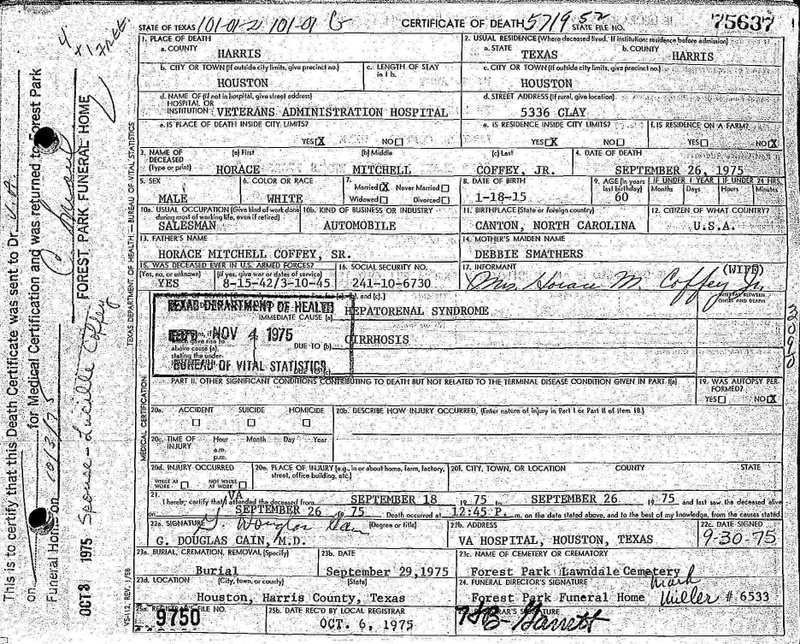 STATE OF TEXAS 101-01-2 101-01 CERTIFICATE OF DEATH 5719 52 STATE FILE NO. 75637
1. PLACE OF DEATH
a. COUNTY
HARRIS
2. USUAL RESIDENCE (Where deceased lived. If institution: residence before admission)
a. STATE b. COUNTY
TEXAS HARRIS
b. CITY OR TOWN (If outside city limits, give precinct no.) c. LENGTH OF STAY in 1 b.
HOUSTON
c. CITY OR TOWN (If outside city limits, give precinct no.)
HOUSTON
d. NAME OF (If not in hospital, give street address)
HOSPITAL OR
INSTITUTION VETERANS ADMINISTRATION HOSPITAL
d. STREET ADDRESS (If rural, give location)
5336 CLAY
e. IS PLACE OF DEATH INSIDE CITY LIMITS?
YES X NO
e. IS RESIDENCE INSIDE CITY LIMITS?
YES X NO
f. IS RESIDENCE ON A FARM?
YES NO X
3. NAME OF DECEASED (Type or print) (a) First (b) Middle (c) Last
HORACE MITCHELL COFFEY, JR.
4. DATE OF DEATH
SEPTEMBER 26, 1975
5. SEX
MALE
6. COLOR OR RACE
WHITE
7. Married X Never Married
Widowed Divorced
8. DATE OF BIRTH
1-18-15
9. AGE (In years last birthday)
60
IF UNDER 1 YEAR IF UNDER 24 HRS.
Months Days Hours Minutes
10a. USUAL OCCUPATION (Give kind of work done during most of working life, even if retired)
SALESMAN
10b. KIND OF BUSINESS OR INDUSTRY
AUTOMOBILE
11. BIRTHPLACE (State or foreign country)
CANTON, NORTH CAROLINA
12. CITIZEN OF WHAT COUNTRY?
U.S.A.
13. FATHER'S NAME
HORACE MITCHELL COFFEY, SR.
14. MOTHER'S MAIDEN NAME
DEBBIE SMATHERS
15. WAS DECEASED EVER IN U.S. ARMED FORCES?
(Yes, no, or unknown) (If yes, give war or dates of service)
YES 8-15-42/3-10-45
16. SOCIAL SECURITY NO.
241-10-6730
17. INFORMANT (WIFE)
Mrs. Horace M. Coffey Jr.
TEXAS DEPARTMENT OF HEALTH
NOV 4 1975
BUREAU OF VITAL STATISTICS
IMMEDIATE CAUSE (a) HEPATORENAL SYNDROME
DUE TO (b) CIRRHOSIS
PART II. OTHER SIGNIFICANT CONDITIONS CONTRIBUTING TO DEATH BUT NOT RELATED TO THE TERMINAL DISEASE CONDITION GIVEN IN PART I(a)
19. WAS AUTOPSY PERFORMED?
YES NO X
20a. ACCIDENT SUICIDE HOMICIDE
20b. DESCRIBE HOW INJURY OCCURRED. (Enter nature of injury in Part I or Part II of item 18.)
20c. TIME OF INJURY Hour Month Day Year
a.m.
p.m.
20d. INJURY OCCURRED
WHILE AT WORK NOT WHILE AT WORK
20e. PLACE OF INJURY (e.g., in or about home, farm, factory, street, office building, etc.)
20f. CITY, TOWN, OR LOCATION COUNTY STATE
21. I hereby certify that VA attended the deceased from SEPTEMBER 18 19 75 to SEPTEMBER 26 19 75 and last saw the deceased alive
on SEPTEMBER 26 19 75. Death occurred at 12:45 P. m. on the date stated above, and to the best of my knowledge, from the causes stated.
22a. SIGNATURE G. Douglas Cain (Degree or title)
G. DOUGLAS CAIN, M.D.
22b. ADDRESS
VA HOSPITAL, HOUSTON, TEXAS
22c. DATE SIGNED
9-30-75
23a. BURIAL, CREMATION, REMOVAL (Specify)
Burial
23b. DATE
September 29, 1975
23c. NAME OF CEMETERY OR CREMATORY
Forest Park Lawndale Cemetery
23d. LOCATION (City, town, or county) (State)
Houston, Harris County, Texas
24. FUNERAL DIRECTOR'S SIGNATURE
Forest Park Funeral Home Mark Miller # 6533
25a. REGISTRAR'S FILE NO.
9750
25b. DATE REC'D BY LOCAL REGISTRAR
OCT. 6, 1975
Garrett
This is to certify that this Death Certificate was sent to Dr. V.A.
on for Medical Certification and was returned to Forest Park
Funeral Home on 10/3/75
FOREST PARK FUNERAL HOME
OCT 3 1975
Spouse - Lucille Coffey
TEXAS DEPARTMENT OF HEALTH — BUREAU OF VITAL STATISTICS
MEDICAL CERTIFICATION